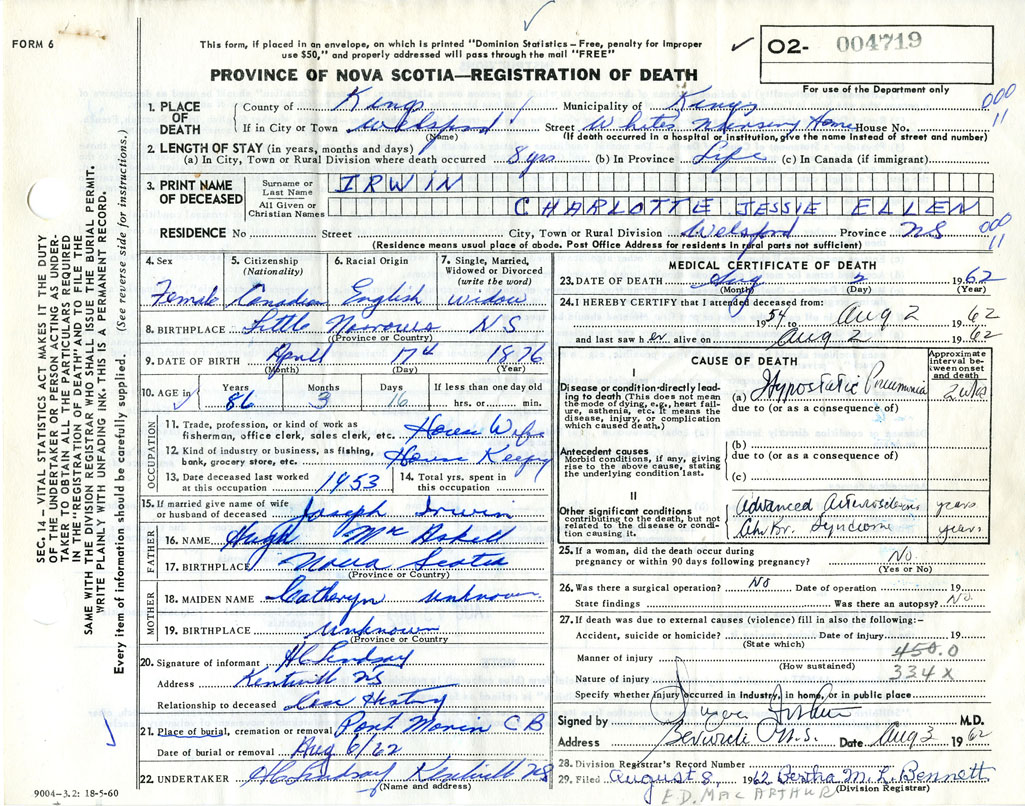 FORM 6
This form, if placed in an envelope, on which is printed "Dominion Statistics – Free, penalty for improper
use $50," and properly addressed will pass through the mail "FREE"
O2- 004719
For use of the Department only
PROVINCE OF NOVA SCOTIA—REGISTRATION OF DEATH
SEC. 14 – VITAL STATISTICS ACT MAKES IT THE DUTY
OF THE UNDERTAKER OR PERSON ACTING AS UNDER-
TAKER TO OBTAIN ALL THE PARTICULARS REQUIRED
IN THE "REGISTRATION OF DEATH" AND TO FILE THE
SAME WITH THE DIVISION REGISTRAR WHO SHALL ISSUE THE BURIAL PERMIT.
WRITE PLAINLY WITH UNFADING INK. THIS IS A PERMANENT RECORD.
Every item of information should be carefully supplied. (See reverse side for instructions.)
1. PLACE OF DEATH
County of Kings Municipality of Kings 000 11
If in City or Town Welsford Street Whites Nursing Home House No.
(Name) (If death occurred in a hospital or institution, give the name instead of street and number)
2. LENGTH OF STAY (in years, months and days)
(a) In City, Town or Rural Division where death occurred 8 yrs (b) In Province Life (c) In Canada (if immigrant)
3. PRINT NAME OF DECEASED
Surname or Last Name IRWIN
All Given or Christian Names CHARLOTTE JESSIE ELLEN
RESIDENCE No Street City, Town or Rural Division Welsford Province NS 000 11
(Residence means usual place of abode. Post Office Address for residents in rural parts not sufficient)
4. Sex Female
5. Citizenship (Nationality) Canadian
6. Racial Origin English
7. Single, Married, Widowed or Divorced (write the word) widow
8. BIRTHPLACE Little Narrows NS
(Province or Country)
9. DATE OF BIRTH April 17th 1876
(Month) (Day) (Year)
10. AGE in Years 86 Months 3 Days 16 If less than one day old hrs. or min.
OCCUPATION
11. Trade, profession, or kind of work as
fisherman, office clerk, sales clerk, etc. House Wife
12. Kind of industry or business, as fishing,
bank, grocery store, etc. House Keeping
13. Date deceased last worked at this occupation 1953
14. Total yrs. spent in this occupation
15. If married give name of wife or husband of deceased Joseph Irwin
FATHER
16. NAME Hugh McAskill
17. BIRTHPLACE Nova Scotia
(Province or Country)
MOTHER
18. MAIDEN NAME Catheryn unknown
19. BIRTHPLACE unknown
(Province or Country)
20. Signature of informant HC Lindsay
Address Kentville NS
Relationship to deceased Case History
21. Place of burial, cremation or removal Port Morien CB
Date of burial or removal Aug 6/62
22. UNDERTAKER HC Lindsay Kentville NS
(Name and address)
9004-3.2: 18-5-60
MEDICAL CERTIFICATE OF DEATH
23. DATE OF DEATH Aug 2 1962
(Month) (Day) (Year)
24. I HEREBY CERTIFY that I attended deceased from:
1954 to Aug 2 1962
and last saw her alive on Aug 2 1962
CAUSE OF DEATH
Approximate interval be-tween onset and death
I
Disease or condition directly lead-
ing to death (This does not mean
the mode of dying, e.g., heart fail-
ure, asthenia, etc. It means the
disease, injury, or complication
which caused death.)
(a) Hypostatic Pneumonia 2 wks
due to (or as a consequence of)
Antecedent causes
Morbid conditions, if any, giving
rise to the above cause, stating
the underlying condition last.
(b)
due to (or as a consequence of)
(c)
II
Other significant conditions
contributing to the death, but not
related to the disease or condi-
tion causing it.
Advanced Arteriosclerosis years
Chr Br. Syndrome years
25. If a woman, did the death occur during
pregnancy or within 90 days following pregnancy? No
(Yes or No)
26. Was there a surgical operation? No Date of operation 19
State findings Was there an autopsy? No
27. If death was due to external causes (violence) fill in also the following:–
Accident, suicide or homicide? Date of injury 19
(State which)
Manner of injury 450.0
(How sustained)
Nature of injury 334 x
Specify whether injury occurred in industry, in home, or in public place
Signed by M.D.
Address Berwick N.S. Date Aug 3 1962
28. Division Registrar's Record Number
29. Filed August 8 1962 Bertha M. R. Bennett
(Division Registrar)
E.D. MACARTHUR